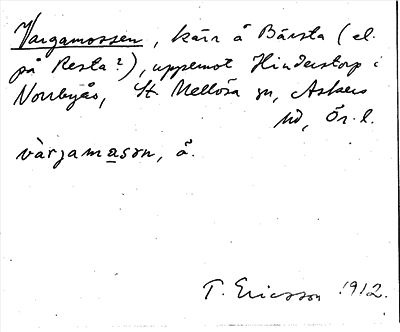 Vargamossen, kärr å Bärsta (el.
på Resta?), uppemot Hinderstorp i
Norrbyås, St. Mellösa sn, Askers
hd, Ör. l.
vàrjamasən, å.
T. Ericsson 1912.